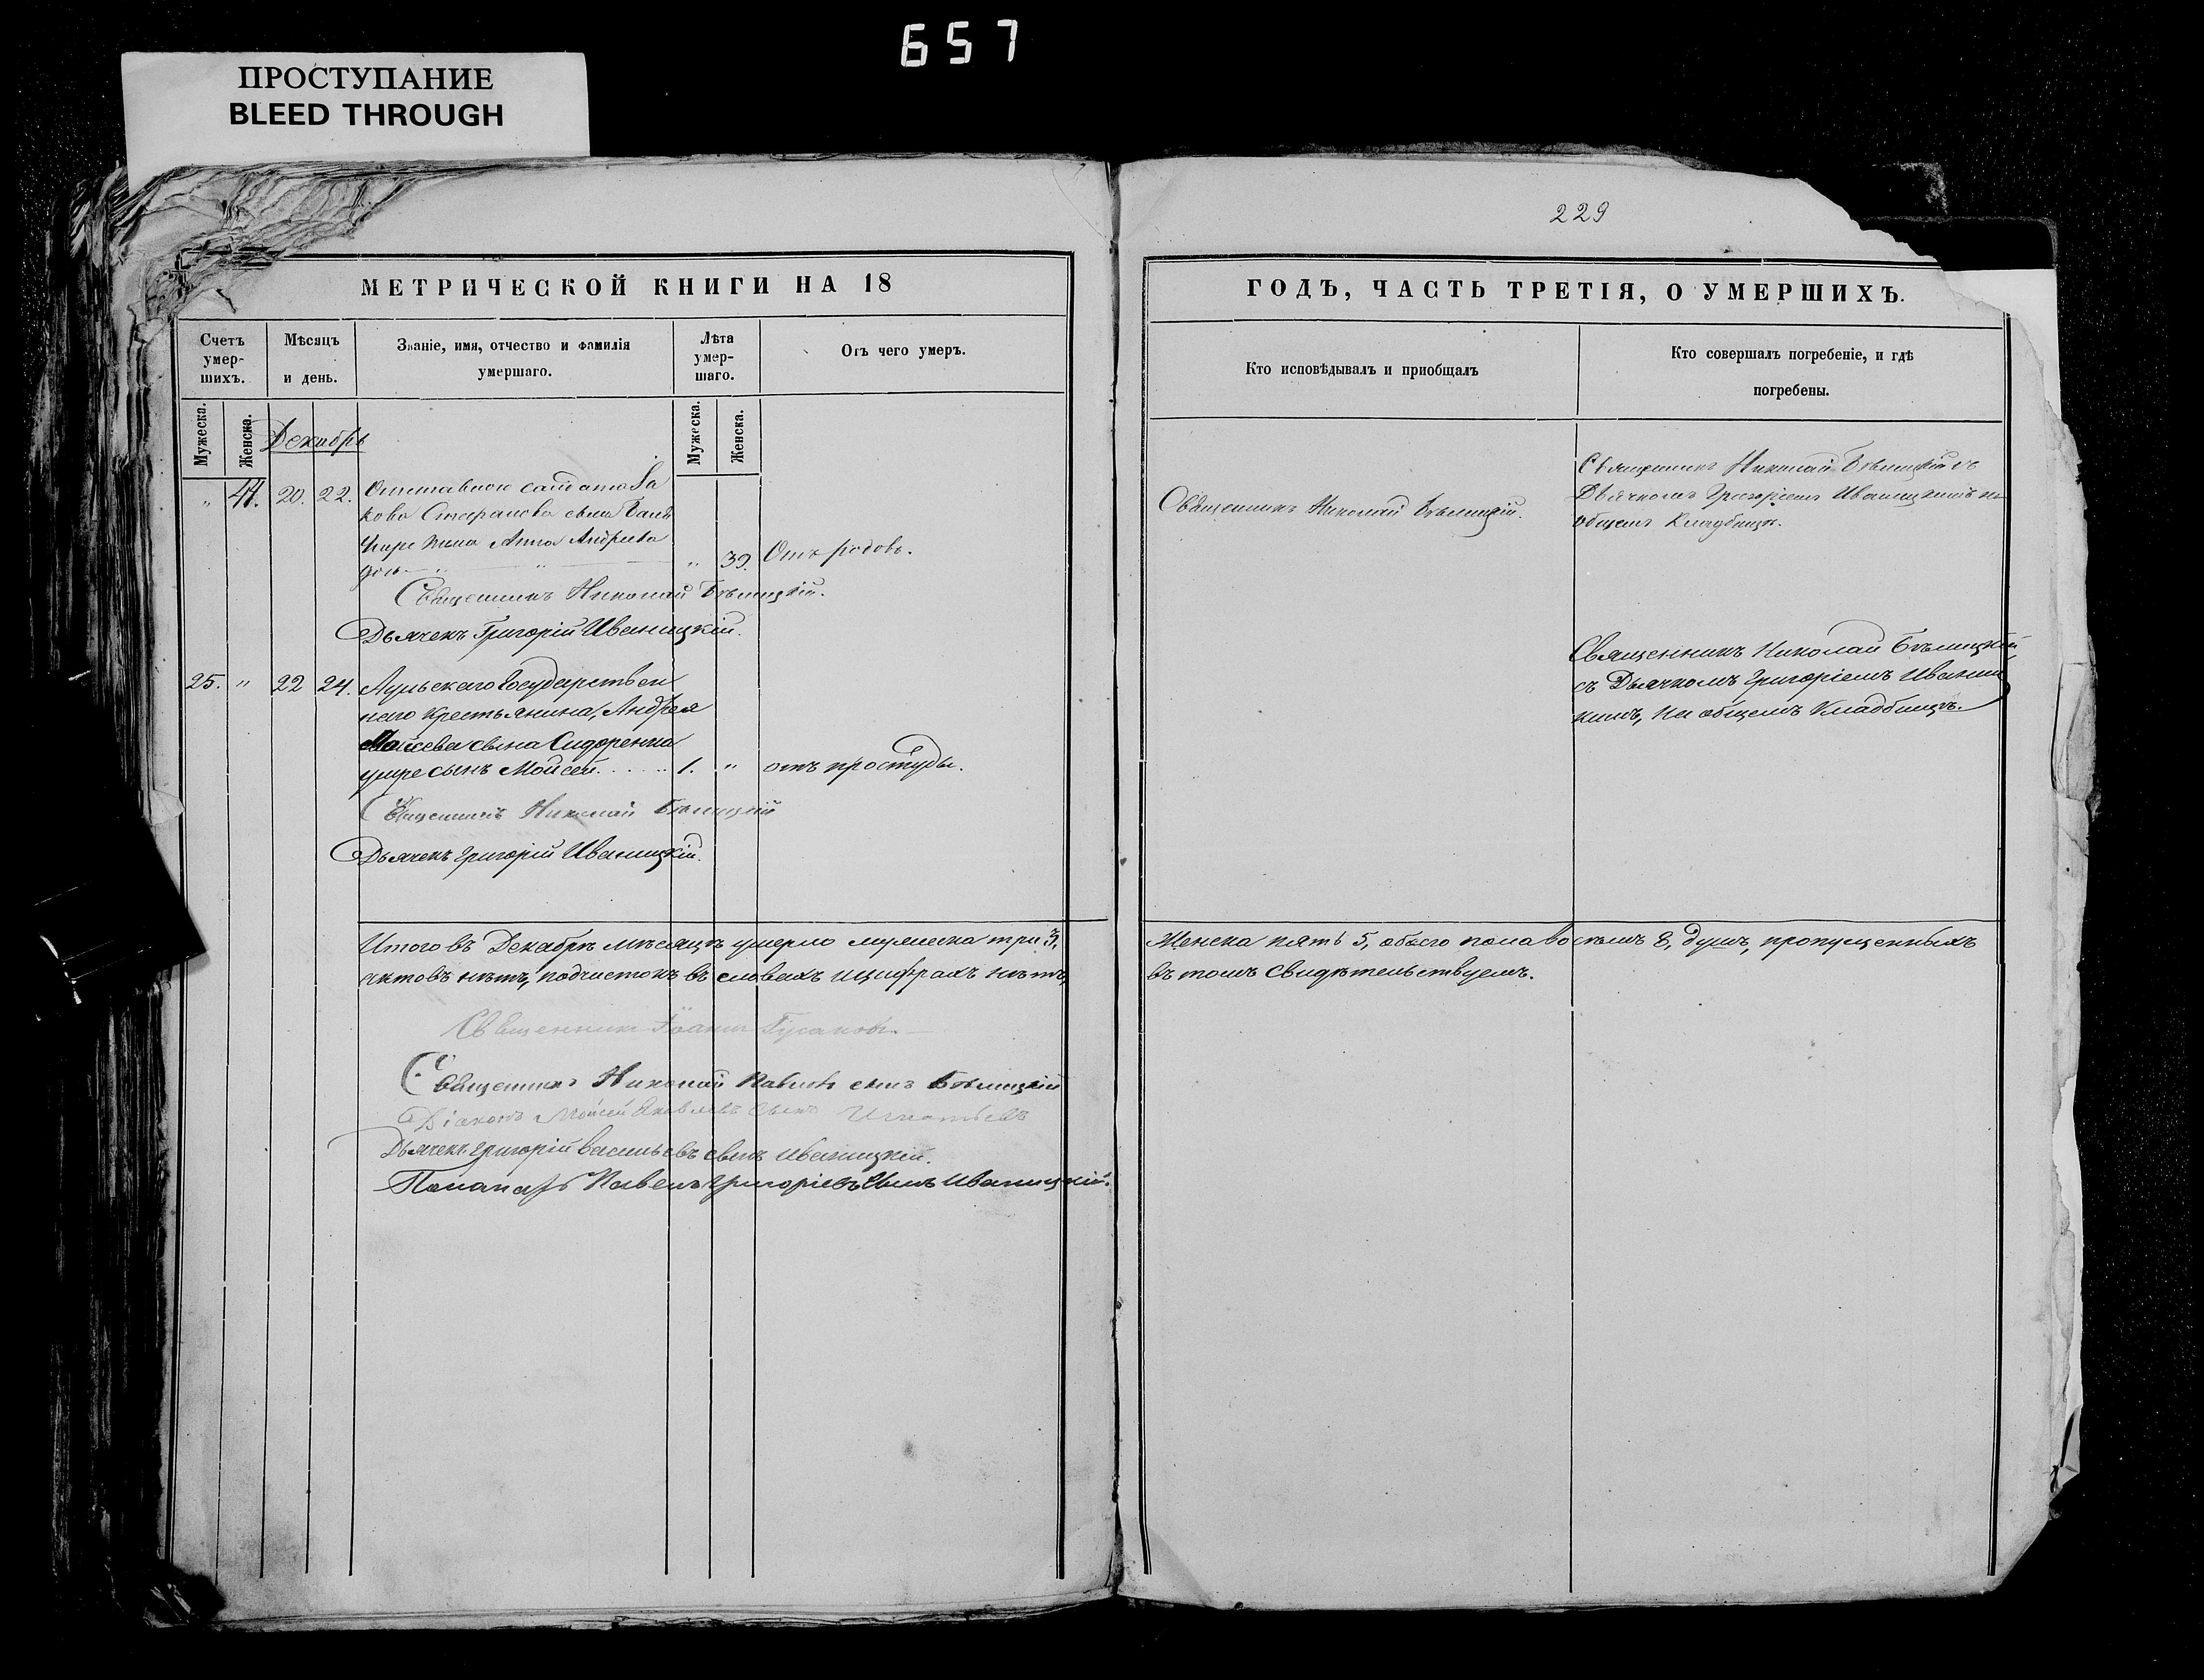 657
ПРОСТУПАНИЕ
BLEED THROUGH
229
МЕТРИЧЕСКОЙ КНИГИ НА 18
Счетъ умер-шихъ.
Мѣсяцъ и день.
Званіе, имя, отчество и фамилія умершаго.
Лѣта умер-шаго.
Отъ чего умеръ.
Мужеска.
Женска.
Декабрь
Мужеска.
Женска.
" 44. 20. 22. Отставного солдата Яа
кова Стефанова сына
умре жена Анна Андреева
" 39. Отъ родовъ.
Священникъ Николай Бѣлицкій.
Дьячекъ Григорій Иваницкій.
25. " 22 24. Аульскаго Государствен
наго крестьянина, Андрея
Моисеева сына Сидоренка
умре сынъ Мойсей. . . . . 1. " отъ простуды.
Священникъ Николай Бѣлицкій
Дьячекъ Григорій Иваницкій.
Итого въ Декабрѣ мѣсяцѣ умерло мужеска три 3,
актовъ нѣтъ, подчистокъ въ словахъ и цифрахъ нѣтъ,
Священникъ Іоаннъ
Священникъ Николай Павловъ сынъ Бѣлицкій
Діаконъ Мойсей Яковлевъ сынъ Игнатьевъ
Дьячекъ Григорій Васильевъ сынъ Иваницкій.
Пономарь Павелъ Григоріевъ Сынъ Иваницкій.
ГОДЪ, ЧАСТЬ ТРЕТІЯ, О УМЕРШИХЪ.
Кто исповѣдывалъ и приобщалъ
Кто совершалъ погребеніе, и гдѣ
погребены.
Священникъ Николай Бѣлицкій.
Священникъ Николай Бѣлицкій съ
Дьячкомъ Григоріемъ Иваницкимъ на
общемъ Кладбищѣ.
Священникъ Николай Бѣлицкій
съ Дьячкомъ Григоріемъ Иваниц
кимъ, на общемъ Кладбищѣ.
Женска пять 5, обоего пола восемь 8, душъ, пропущенныхъ
въ томъ свидѣтельствуемъ.